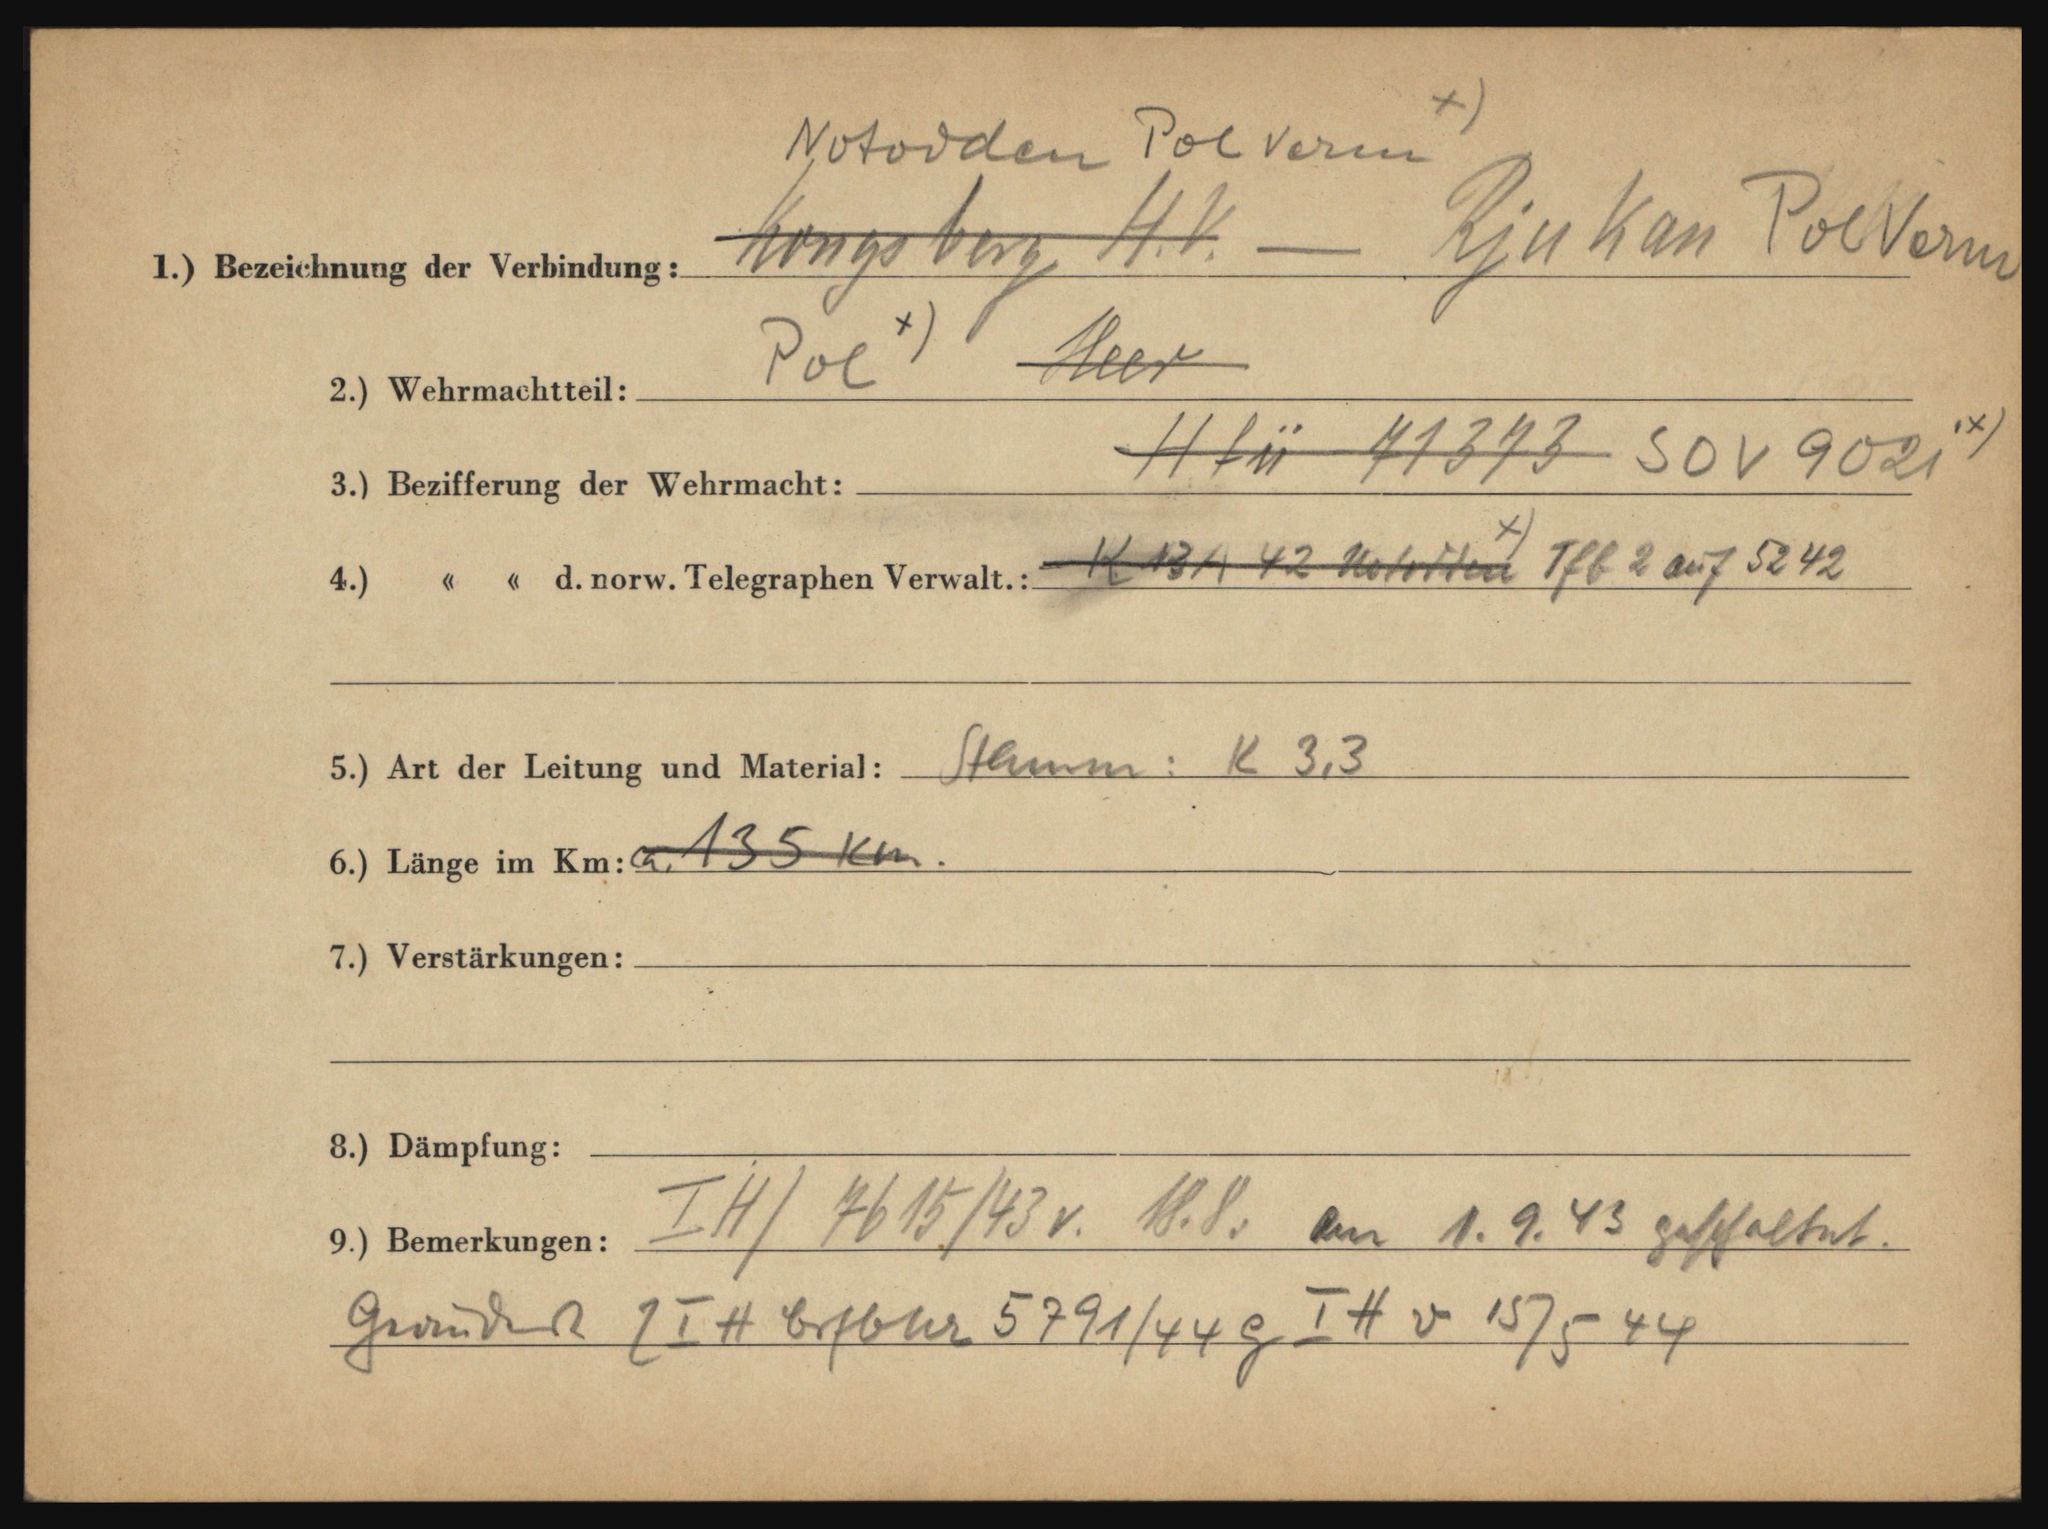 Notodden Pol Verm x)
1.) Bezeichnung der Verbindung: Kongsberg H.V. — Rjukan Pol Verm
2.) Wehrmachtteil: Pol x) Heer
3.) Bezifferung der Wehrmacht: H fü 71373 SOV 9021 x)
4.) « « d. norw. Telegraphen Verwalt.: K 13A 42 Notodden x) Tfb 2 auf 5242
5.) Art der Leitung und Material: Stamm: K 3,3
6.) Länge im Km: ca. 135 Km.
7.) Verstärkungen:
8.) Dämpfung:
9.) Bemerkungen: I H/ 7615/43 v. 18.8. am 1.9.43 geschaltet.
Geändert I H 5791/44 g I H v 15/5 44